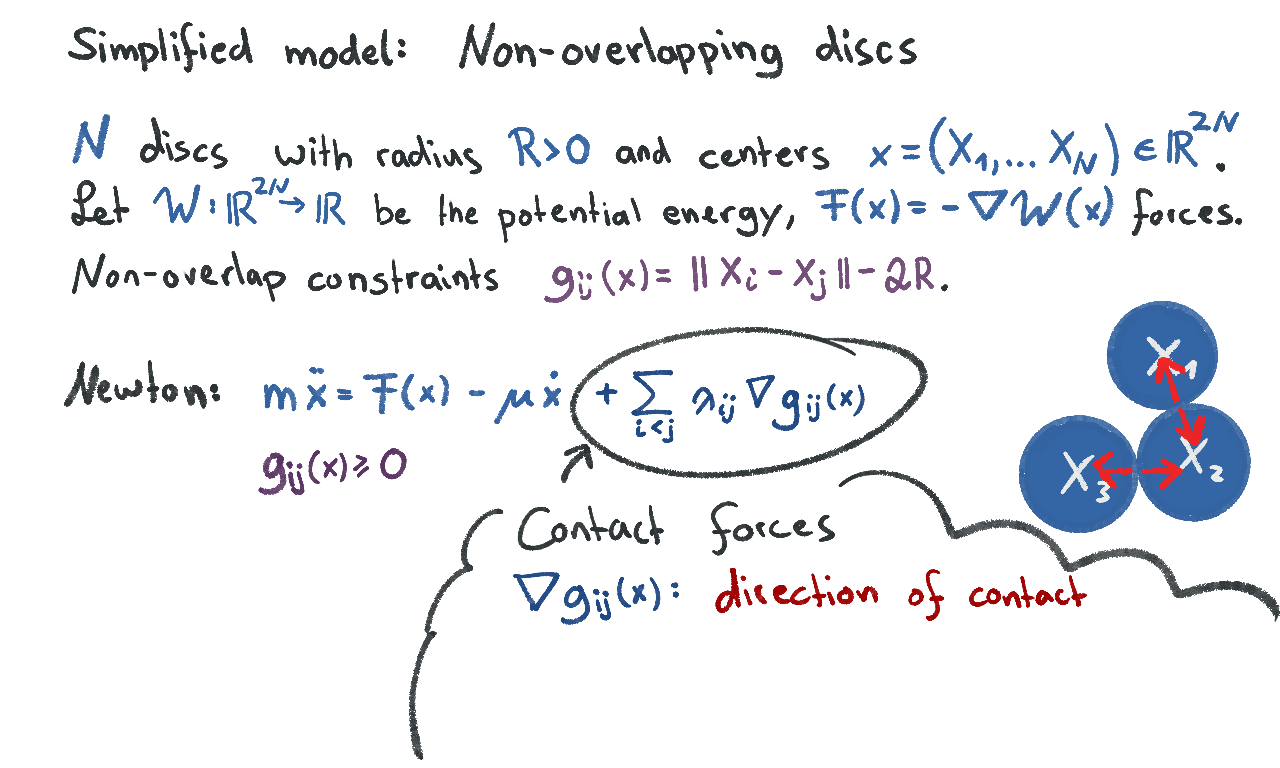 Simplified model: Non-overlapping discs
N discs with radius R>0 and centers x = (X₁,... X_N) ∈ ℝ²ᴺ.
Let W : ℝ²ᴺ → ℝ be the potential energy, F(x) = - ∇W(x) forces.
Non-overlap constraints g_ij(x) = ‖X_i - X_j‖ - 2R.
Newton: mẍ = F(x) - μẋ + ∑_{i<j} λ_ij ∇g_ij(x)
g_ij(x) ≥ 0
X₁
X₂
X₃
Contact forces
∇g_ij(x): direction of contact